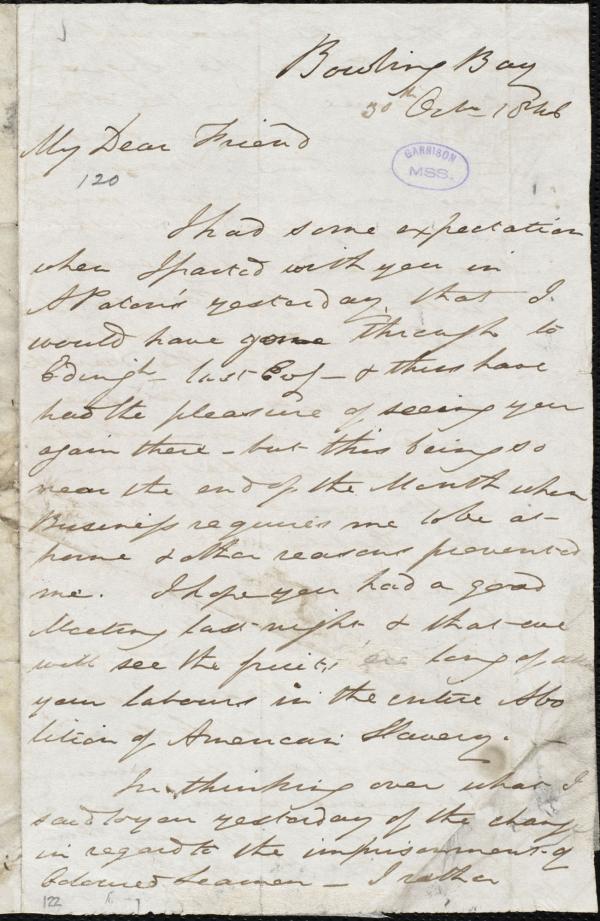 Bowling Bay
30th Octr 1846
My Dear Friend
120
GARRISON
MSS.
I had some expectation
when I parted with you in
A Paton's yesterday, that I
would have gone through to
Edingh last Evg - & thus have
had the pleasure of seeing you
again there - but this being so
near the end of the Month when
Business requires me to be at
home & other reasons prevented
me. I hope you had a good
Meeting last night & that we
will see the fruits ere long of all
your labours in the entire Abo
lition of American Slavery.
In thinking over what I
said to you yesterday of the change
in regard to the imprisonment of
Coloured Seamen - I rather
122